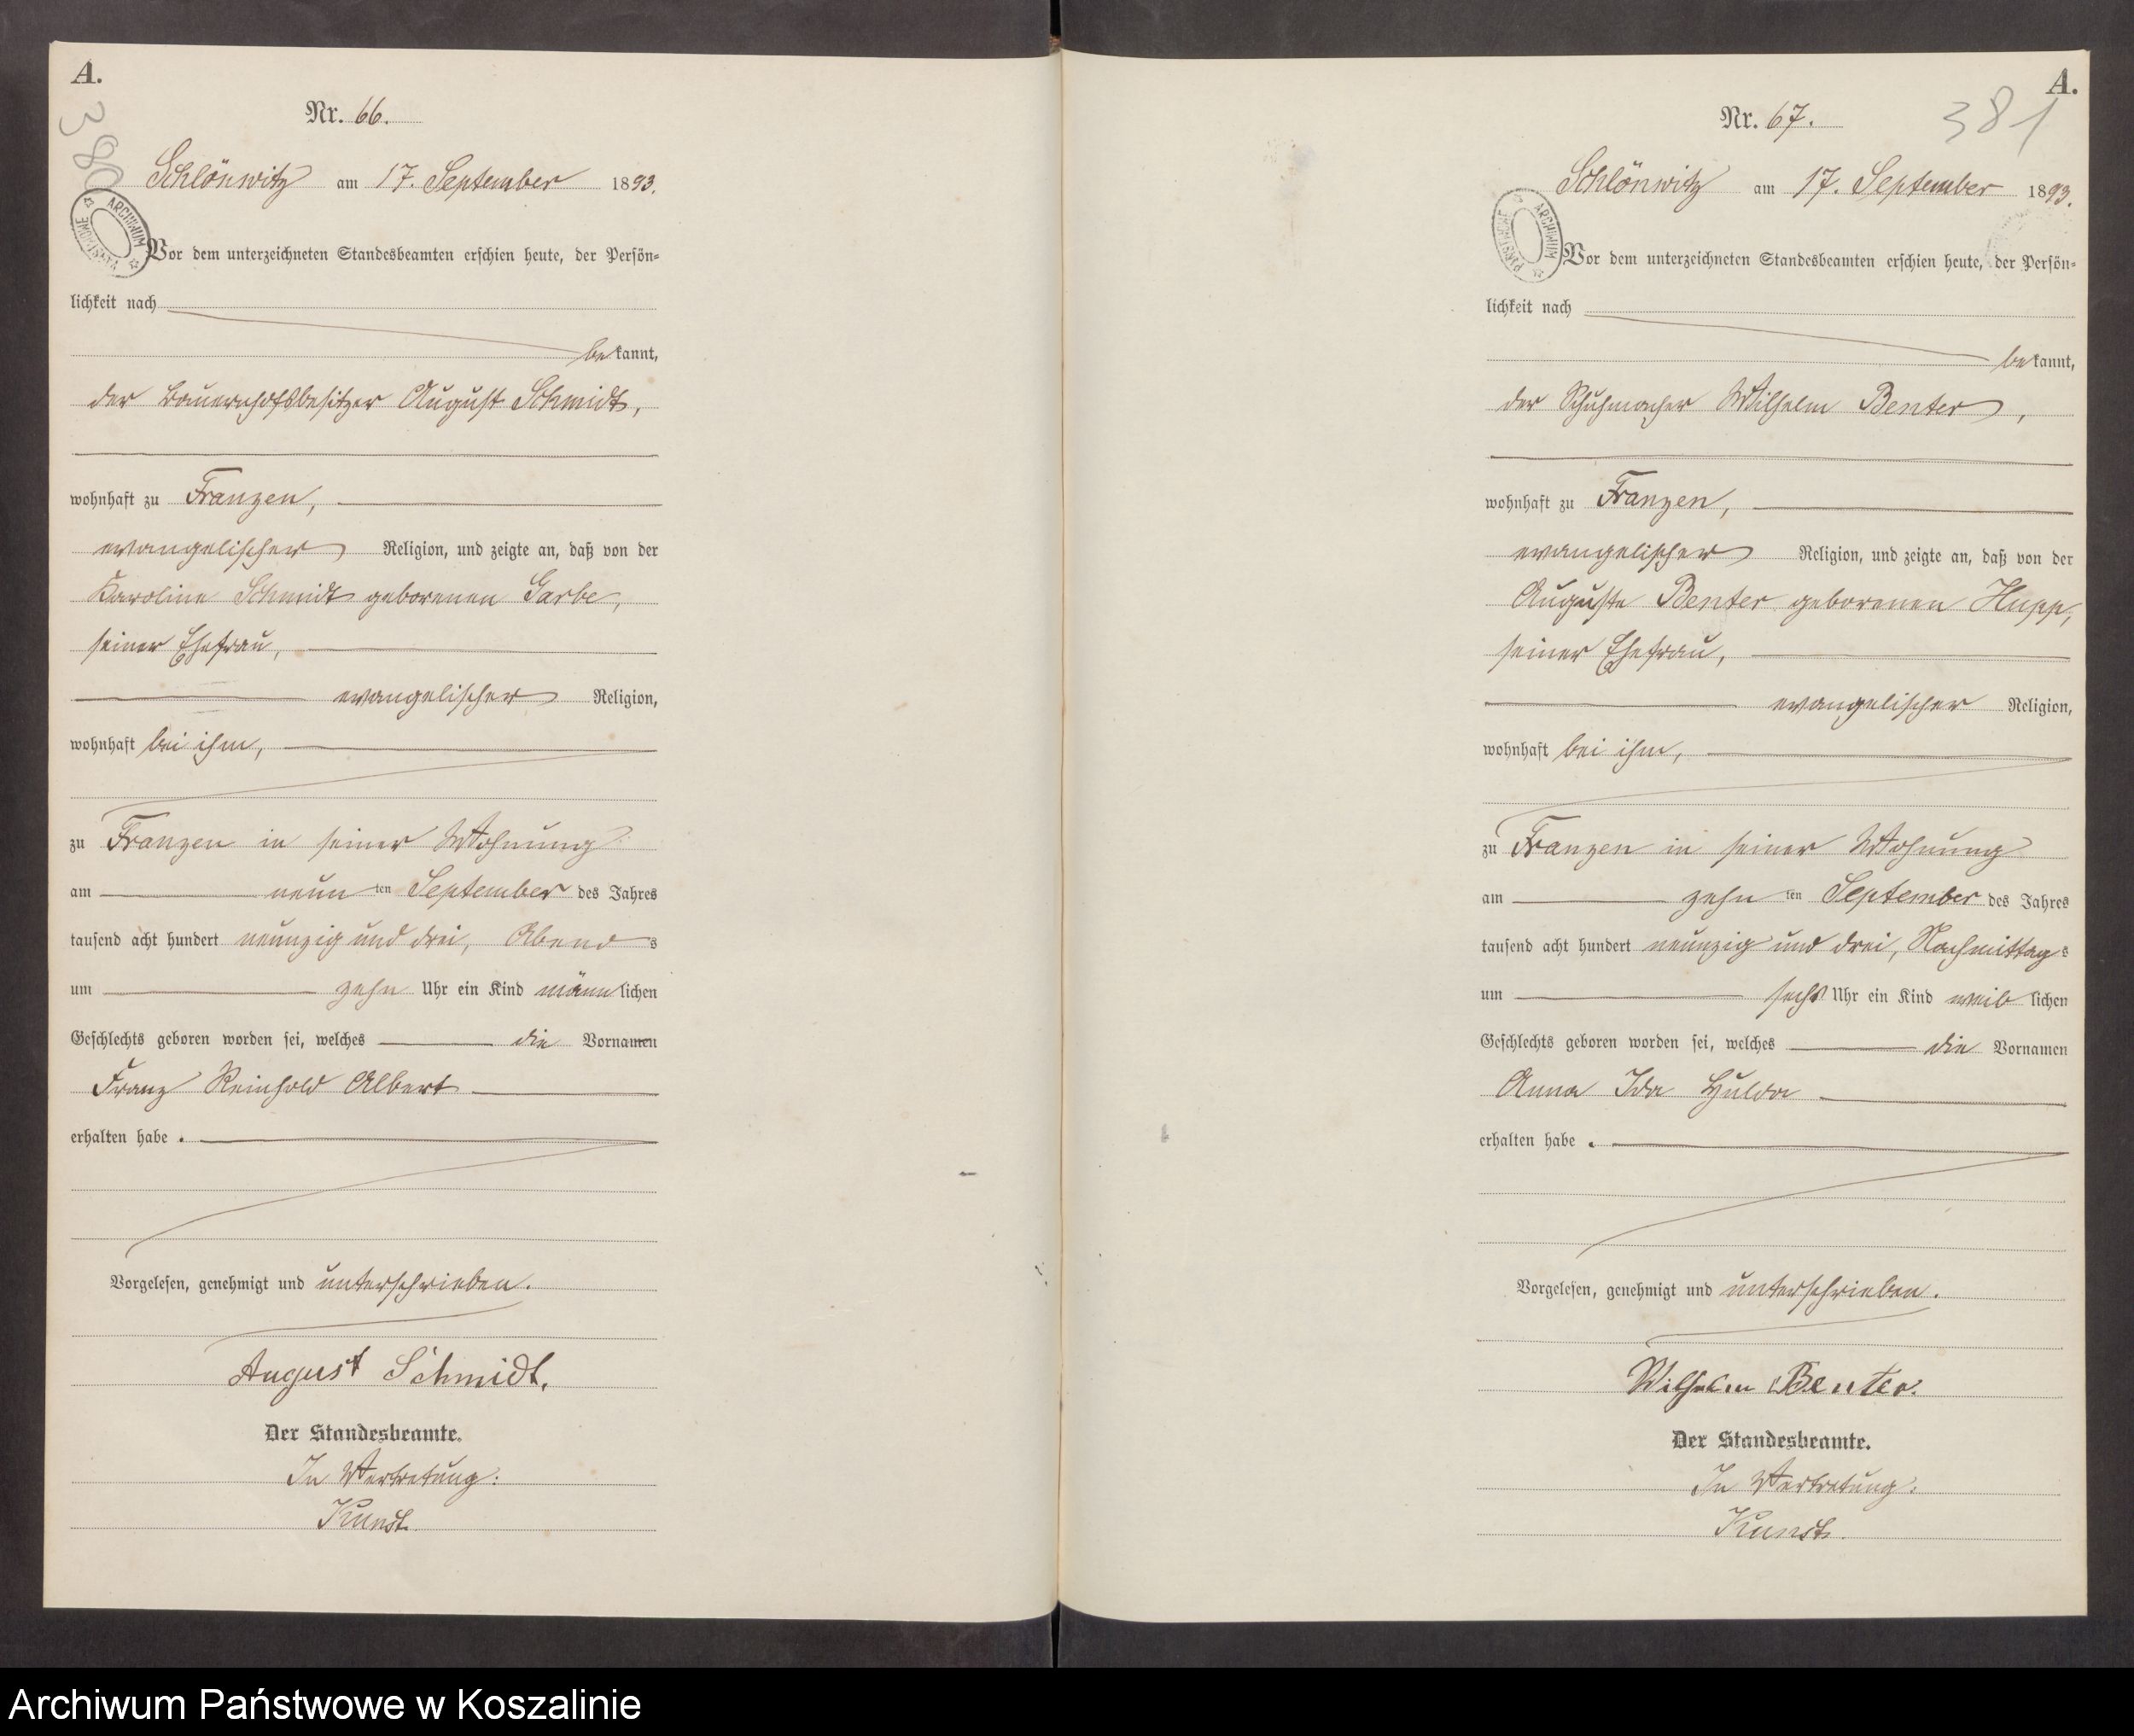 A.
380
Nr. 66.
Schlönwitz am 17. September 1893.
ARCHIWUM PAŃSTWOWE
Vor dem unterzeichneten Standesbeamten erschien heute, der Persön-
lichkeit nach
bekannt,
der Bauernhofsbesitzer August Schmidt,
wohnhaft zu Franzen,
evangelischer Religion, und zeigte an, daß von der
Karoline Schmidt geborenen Garbe,
seiner Ehefrau,
evangelischer Religion,
wohnhaft bei ihm,
zu Franzen in seiner Wohnung
am neunten September des Jahres
tausend acht hundert neunzig und drei, Abends
um zehn Uhr ein Kind männlichen
Geschlechts geboren worden sei, welches die Vornamen
Franz Reinhold Albert
erhalten habe.
Vorgelesen, genehmigt und unterschrieben.
August Schmidt.
Der Standesbeamte.
In Vertretung:
Kunst.
A.
381
Nr. 67.
Schlönwitz am 17. September 1893.
ARCHIWUM PAŃSTWOWE
Vor dem unterzeichneten Standesbeamten erschien heute, der Persön-
lichkeit nach
bekannt,
der Schuhmacher Wilhelm Benter,
wohnhaft zu Franzen,
evangelischer Religion, und zeigte an, daß von der
Auguste Benter geborenen Hupp,
seiner Ehefrau,
evangelischer Religion,
wohnhaft bei ihm,
zu Franzen in seiner Wohnung
am zehnten September des Jahres
tausend acht hundert neunzig und drei, Nachmittags
um sechs Uhr ein Kind weiblichen
Geschlechts geboren worden sei, welches die Vornamen
Anna Ida Hulda
erhalten habe.
Vorgelesen, genehmigt und unterschrieben.
Wilhelm Benter.
Der Standesbeamte.
In Vertretung:
Kunst.
Archiwum Państwowe w Koszalinie